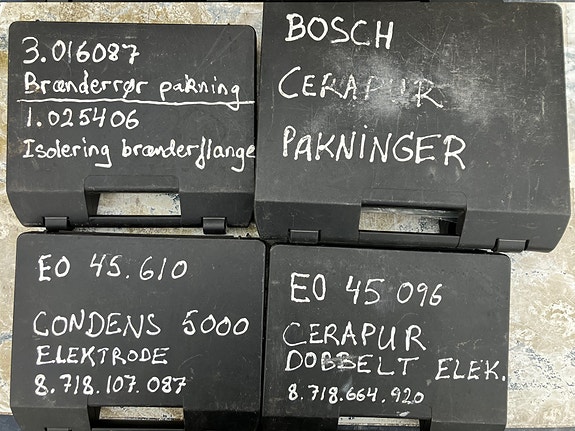 3.016087
Brænderrør pakning
1.025406
Isolering brænderflange
BOSCH
CERAPUR
PAKNINGER
EO 45.610
CONDENS 5000
ELEKTRODE
8.718.107.087
EO 45 096
CERAPUR
DOBBELT ELEK.
8.718.664.920